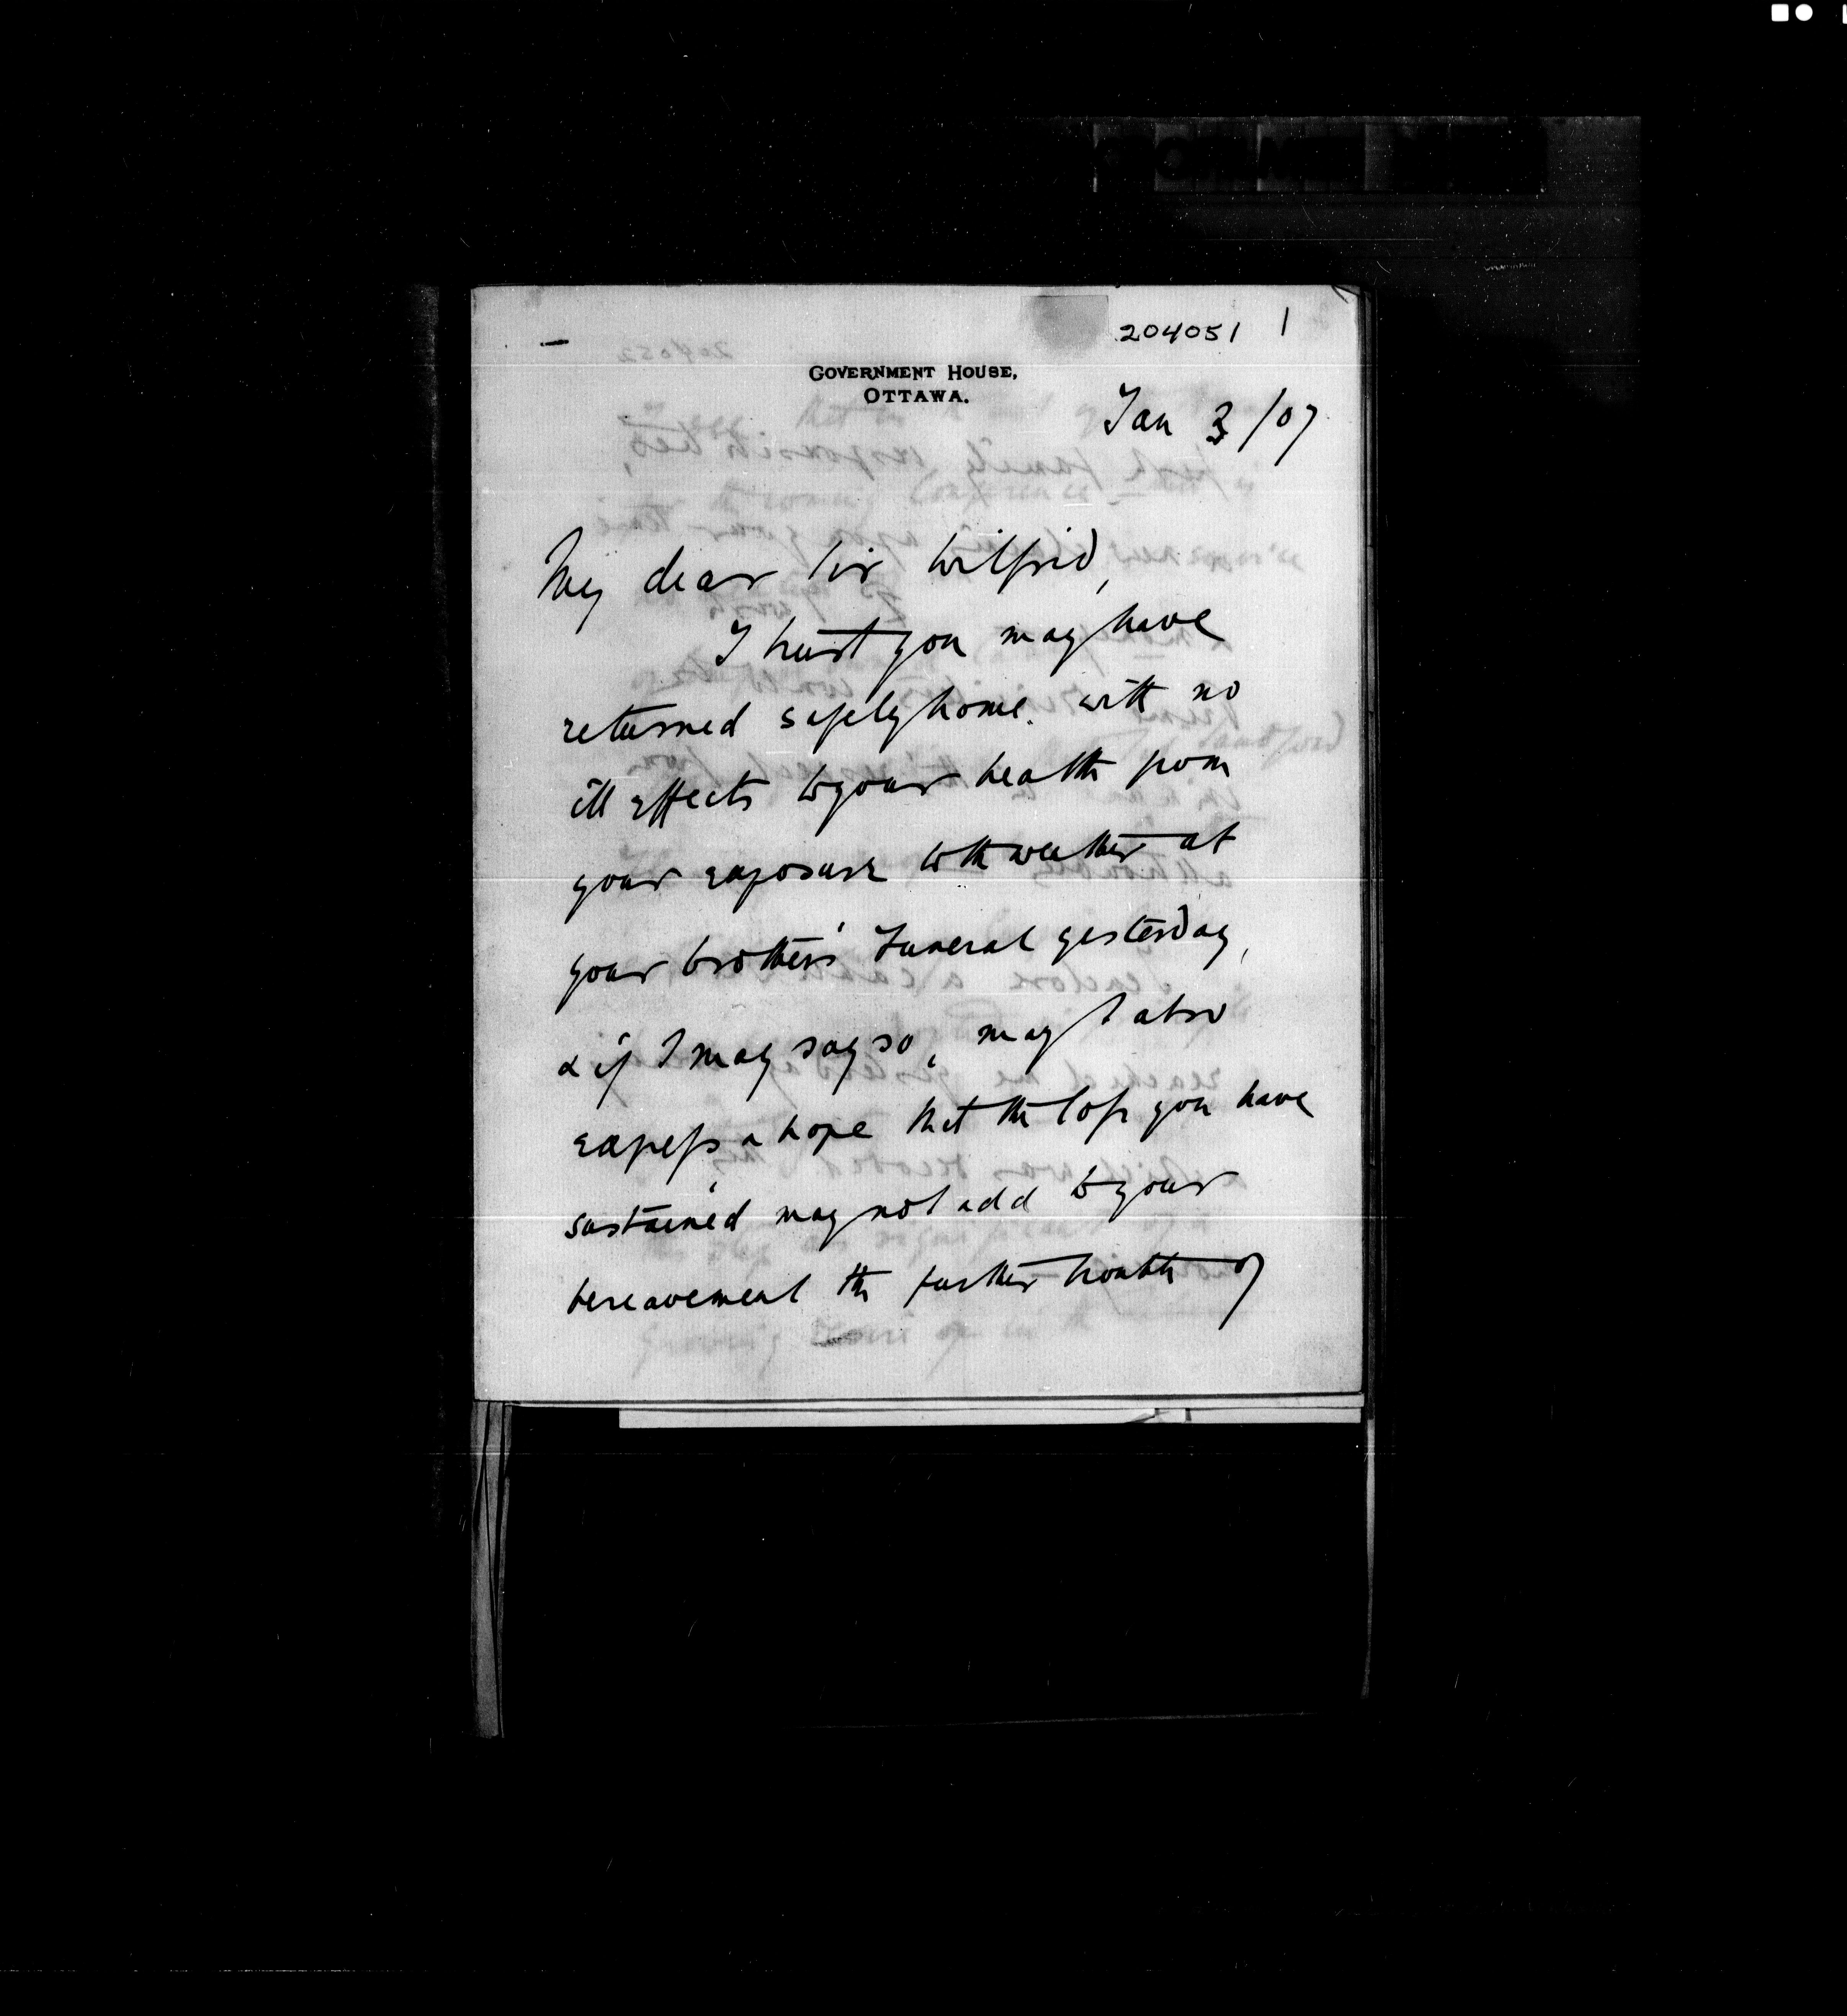 204051 1
GOVERNMENT HOUSE,
OTTAWA.
Jan 3/07
My dear Sir Wilfrid,
I trust you may have
returned safely home with no
ill effects to your health from
your exposure to the weather at
your brother's funeral yesterday,
& if I may say so, may I also
express a hope that the loss you have
sustained may not add to your
bereavement the further trouble of